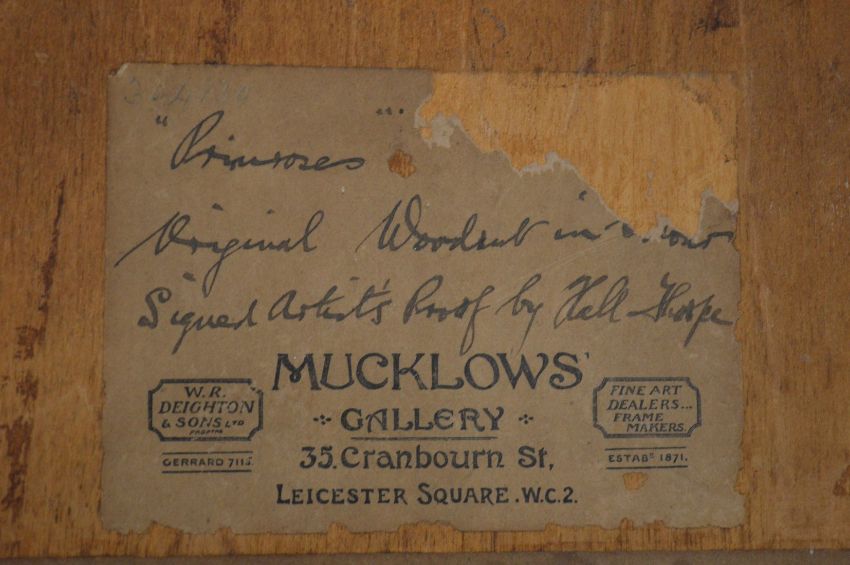 "Primroses"
Original Woodcut in
Signed Artist's Proof by Hall-Thorpe
MUCKLOWS'
GALLERY
35. Cranbourn St,
LEICESTER SQUARE. W.C.2.
W.R.
DEIGHTON
& SONS LTD
PROPTRS
GERRARD 7115.
FINE ART
DEALERS...
FRAME
MAKERS.
ESTABD 1871.